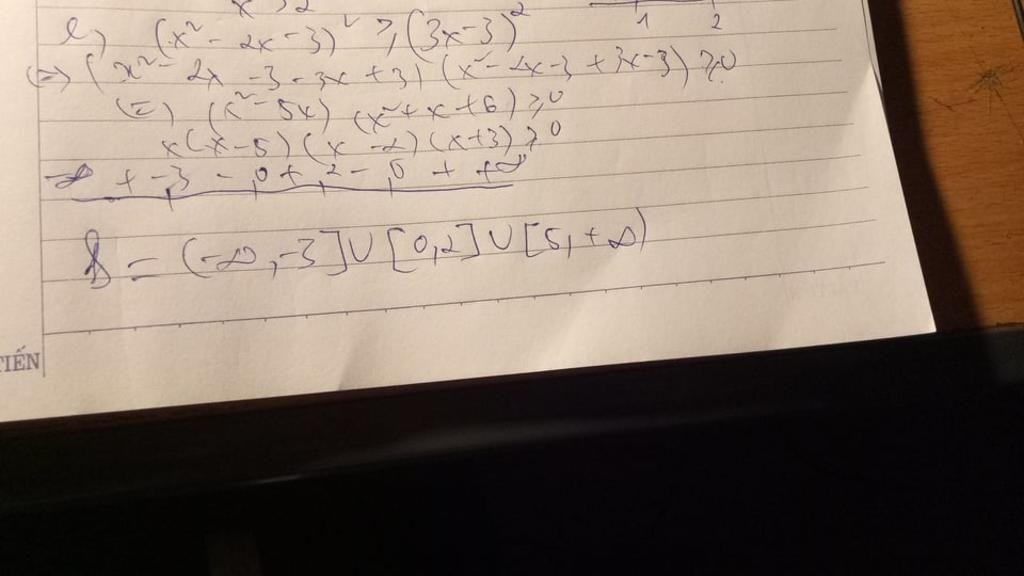 x > 2
1 2
e) (x² - 2x - 3)² ≥ (3x-3)²
(=) (x² - 2x - 3 - 3x + 3) (x² - 2x - 3 + 3x - 3) ≥ 0
(=) (x² - 5x) (x² + x + 6) ≥ 0
x(x-5)(x-2)(x+3) ≥ 0
-∞ + -3 - 0 + 2 - 5 + +∞
S = (-∞, -3] ∪ [0,2] ∪ [5, +∞)
TIẾN